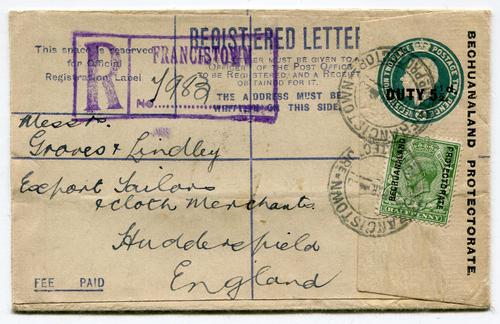 REGISTERED LETTER
This space is reserved
for Official
Registration Label
R
FRANCISTOWN
No. 7983
LETTER MUST BE GIVEN TO
OFFICER OF THE POST OFFICE
TO BE REGISTERED, AND A RECEIPT
OBTAINED FOR IT.
THE ADDRESS MUST BE
WRITTEN ON THIS SIDE.
DUTY
BECHUANALAND PROTECTORATE.
BECHUANALAND
PROTECTORATE
HALFPENNY
FRANCISTOWN
Messrs
Groves & Lindley
Export Tailors
& Cloth Merchants
Huddersfield
England
FEE PAID